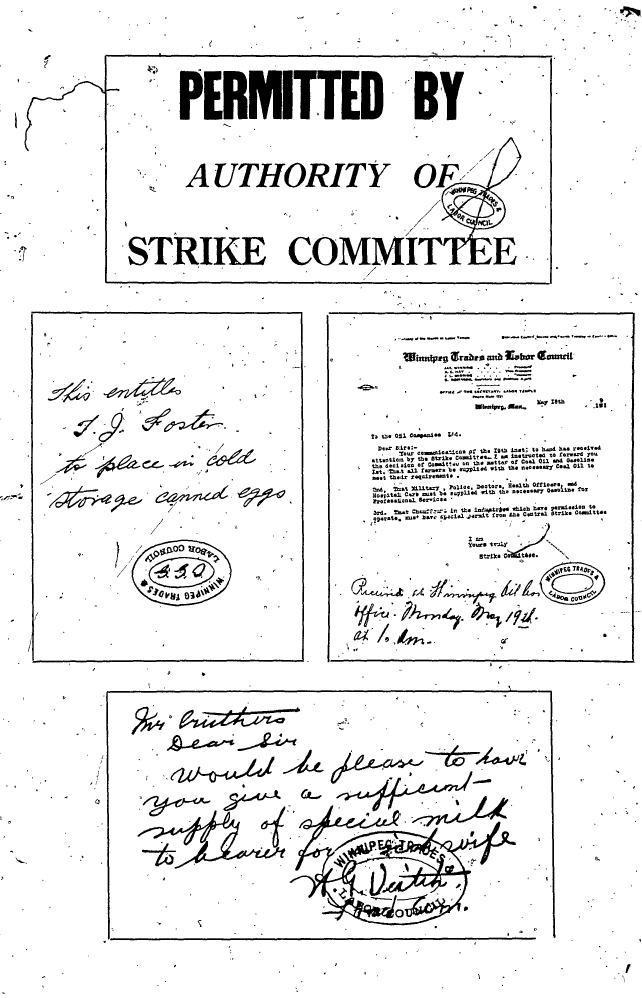 PERMITTED BY
AUTHORITY OF
WINNIPEG TRADES &
LABOR COUNCIL
STRIKE COMMITTEE
This entitles
T. J. Foster
to place in cold
storage canned eggs.
LABOR COUNCIL
WINNIPEG TRADES &
Winnipeg Trades and Labor Council
OFFICE OF THE SECRETARY, LABOR TEMPLE
Winnipeg, Man., May 18th 191 9
To the Oil Companies Ltd.
Dear Sirs:-
Your communications of the 18th inst; to hand has received
attention by the Strike Committee. I am instructed to forward you
the decision of Committee on the matter of Coal Oil and Gasoline
1st. That all farmers be supplied with the necessary Coal Oil to
meet their requirements.
2nd, That Military, Police, Doctors, Health Officers, and
Hospital Cars must be supplied with the necessary Gasoline for
Professional Services
3rd. That Chauffeurs in the industries which have permission to
operate, must have special permit from the Central Strike Committee
I am
Yours truly
Strike Committee.
WINNIPEG TRADES &
LABOR COUNCIL
Received at Winnipeg Oil Co's
office. Monday. May 19th.
at 10 am.
Mr Cruthers
Dear Sir
would be please to have
you give a sufficient
supply of special milk
to bearer for wife
WINNIPEG TRADES &
A. G. Veitch
LABOR COUNCIL